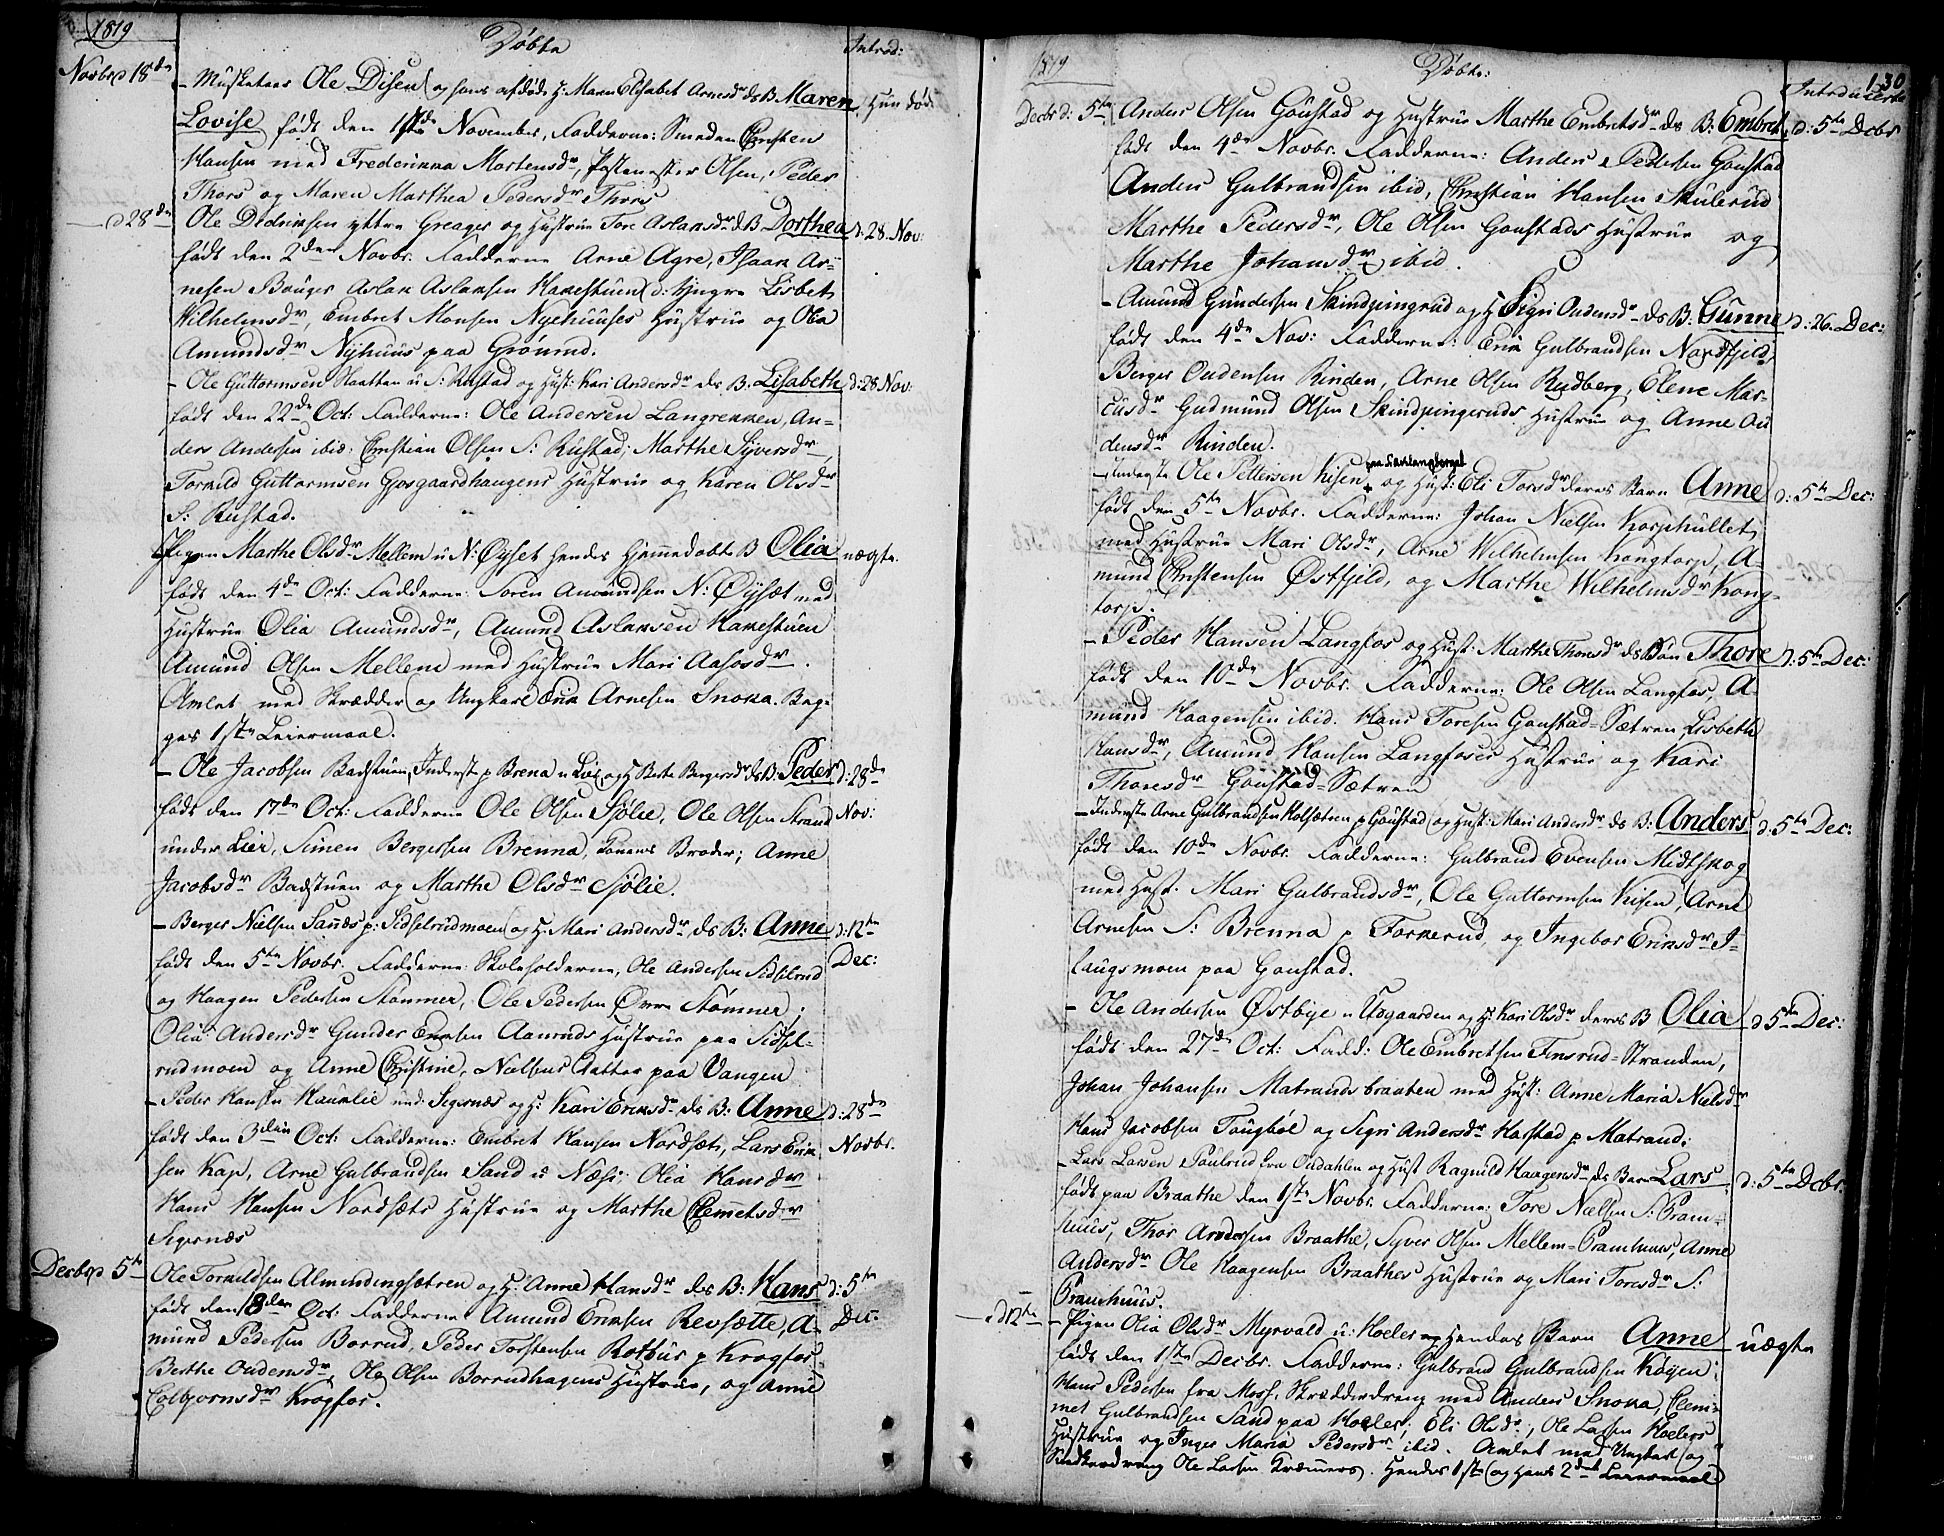 1819 Døbte Introd:
Novbr d 18de – Musketeer Ole Disen og hans afdøde H: Maren Elisabet Arnesdr ds B Maren Hun død
Lovise født den 1de November, Fadderne: Smeden Christen
Hansen med Frederikka Mortensdr, Postmester Olsen, Peder
Thors og Maren Marthea Pedersdr Thors
– d 28de Ole Dedriksen yttre Greager og Hustrue Tore Aslaksdr ds B Dorthea d: 28. Nov:
født den 2den Novbr. Fadderne Arne Agre, Isaak Ar-
nesen Bauger Aslak Aslaksen Hakestuen Lisbet
Wilhelmsdr, Embret Monsen Nyehuuses Hustrue og Olia
Amundsdr Nyhuus paa Grønrud.
– Ole Guttormsen Haatten u S: Rustad og Hust: Kari Andersdr ds B. Lisabeth d: 28 Nov:
født den 22de Oct: Fadderne: Ole Andersen Langrekken, An-
ders Andersen ibid; Christian Olsen S: Rustad; Marthe Syversdr,
Torkild Guttormsen Gjosgaardhaugens Hustrue og Karen Olsdr
S: Rustad.
Pigen Marthe Olsdr Mellem u N: Øyset hendes hjemmedøbte B Olia uægte.
født den 4de Oct: Fadderne: Soren Amundsen N: Øysæt med
Hustrue Olia Amundsdr, Amund Aslaksen Hakestuen
Amund Olsen Mellem med Hustrue Mari Aasosdr.
Avlet med Skrædder og Ungkarl Erik Arnesen Snoka. Beg-
ges 1ste Leiermaal.
– Ole Jacobsen Badstuen, Inderst p Brena u Lier og H Berte Bergersdr ds B: Peder d: 28de
født den 17de Oct: Fadderne Ole Olsen Sjølie, Ole Olsen Strand Nov:
under Lier, Simen Bergersen Brenna, Konens Broder; Anne
Jacobsdr Badstuen og Marthe Olsdr Sjølie.
– Berger Nielsen Sanæs p: Sidselrudmoen og H: Mari Andersdr, ds B: Anne d: 12te
født den 5te Novbr. Fadderne: Skoleholderne, Ole Andersen Sidselrud Dec:
og Haagen Pedersen Stømmer, Ole Pedersen Øvre Stømner;
Olia Andersdr Gunder Eriksen Aamuds Hustrue paa Sidsel-
rudmoen og Anne Christine, Nielsens Datter paa Vangen
– Peder Hansen Haurlie und: Sigernæs og H: Kari Eriksdr, ds B: Anne d: 28de
født den 3dein Oct: Fadderne: Embret Hansen Nordsæt, Lars Erik- Novbr.
sen Kap, Arne Gulbrandsen Sand u Næs; Olia Hansdr
Hans Hansen Nordsæts Hustrue og Marthe Clemetsdr
Sigernæs
Decbr d 5te Ole Torkildsen Almindingsætren og H: Anne Hansdr ds B: Hans d: 5te
født den 18den Oct: Fadderne Amund Eriksen Revsætte, A- Dec:
mund Pedersen Borrud, Peder Torstensen Rotbus p Krogfos
Berthe Oudensdr, Ole Olsen Borrudhagens Hustrue, og Anne
Colbjornsdr Krogfos.
1819 Døbte: Introducerte 130
Decbr d: 5te Anders Olsen Gaustad og Hustrue Marthe Embretsdr ds B: Embret d: 5te Decbr
født den 4de Novbr. Fadderne: Anders Pedersen Gaustad
Anders Gulbrandsen ibid, Christian Hansen Skulerud
Marthe Pedersdr, Ole Olsen Gaustads Hustrue og
Marthe Johansdr ibid.
– Amund Gundersen Skindpungrud og H Sigri Oudensdr ds B: Gunne d: 26. Dec:
født den 4de Nov: Fadderne: Erik Gulbrandsen Nordfjeld,
Berger Oudensen Rinden, Arne Olsen Rudberg, Elene Mar-
cusdr Gudmund Olsen Skindpungeruds Hustrue og Anne Ou
densdr Rinden.
– Inderste Ole Pettersen Kisen paa Sæterlangberget og Hust: Eli Torsdr deres Barn Anne d: 5te Dec:
født den 5te Novbr. Fadderne: Johan Nielsen Korphullet
med Hustrue Mari Olsdr, Arne Wilhelmsen Kongtorp, A-
mund Christensen Østfjeld, og Marthe Wilhelmsdr Kong-
torp.
– Peder Hansen Langfos og Hust: Marthe Thoresdr ds Søn Thore d: 5te Dec:
født den 10de Novbr. Fadderne: Ole Olsen Langfos, A-
mund Haagensen ibid. Hans Toresen Gaustad-Sætren, Lisbeth
Hansdr, Amund Hansen Langfoses Hustrue og Kari
Thoresdr Gaustad-Sætren
– Inderste Arne Gulbrandsen Holsætren p Gaustad og Hust: Mari Andersdr ds B: Anders d: 5te Dec:
født den 10de Novbr. Fadderne: Gulbrand Evensen Midtskog
med Hust. Mari Gulbrandsdr, Ole Guttormsen Kisen, Arne
Arnesen S: Brenna p Forkerud, og Ingebor Eriksdr I-
laugsmoen paa Gaustad.
– Ole Andersen Østbye u Udgaarden og H: Kari Olsdr deres B Olia d 5te Dec:
født den 27de Oct: Fadd: Ole Embretsen Finsrud-Stranden,
Johan Johansen Matrandsbraaten med Hust: Anne Maria Nielsdr
Hans Jacobsen Taugbøl og Sigri Andersdr Harstad p Matrand.
– Lars Larsen Paulrud fra Oudahlen og Hust Ragnild Haagensdr ds Barn Lars d: 5te Decbr.
født paa Braathe den 1ste Novbr. Fadderne: Tore Nielsen S: Pram-
huus, Thor Andersen Braathe, Syver Olsen Mellem-Pramhuus, Anne
Andersdr Ole Haagensen Braathes Hustrue og Mari Toresdr S:
Pramhuus.
– d 12te – Pigen Olia Olsdr Myrvald u: Hoeler hendes Barn Anne uægte
født den 1ste Decbr. Fadderne: Gulbrand Gulbrandsen Køyen;
Hans Pedersen fra Moss, Skrædderdreng med Anders Snoka, Clem-
met Gulbrandsen Sand paa Hoeler, Eli Olsdr, Ole Larsen Hoelers
Hustrue og Inger Maria Pedersdr ibid. Avlet med Ungkarl og
Snedkerdreng Ole Larsen Kræmmers. Hendes 1ste og hans 2det Leiermaal